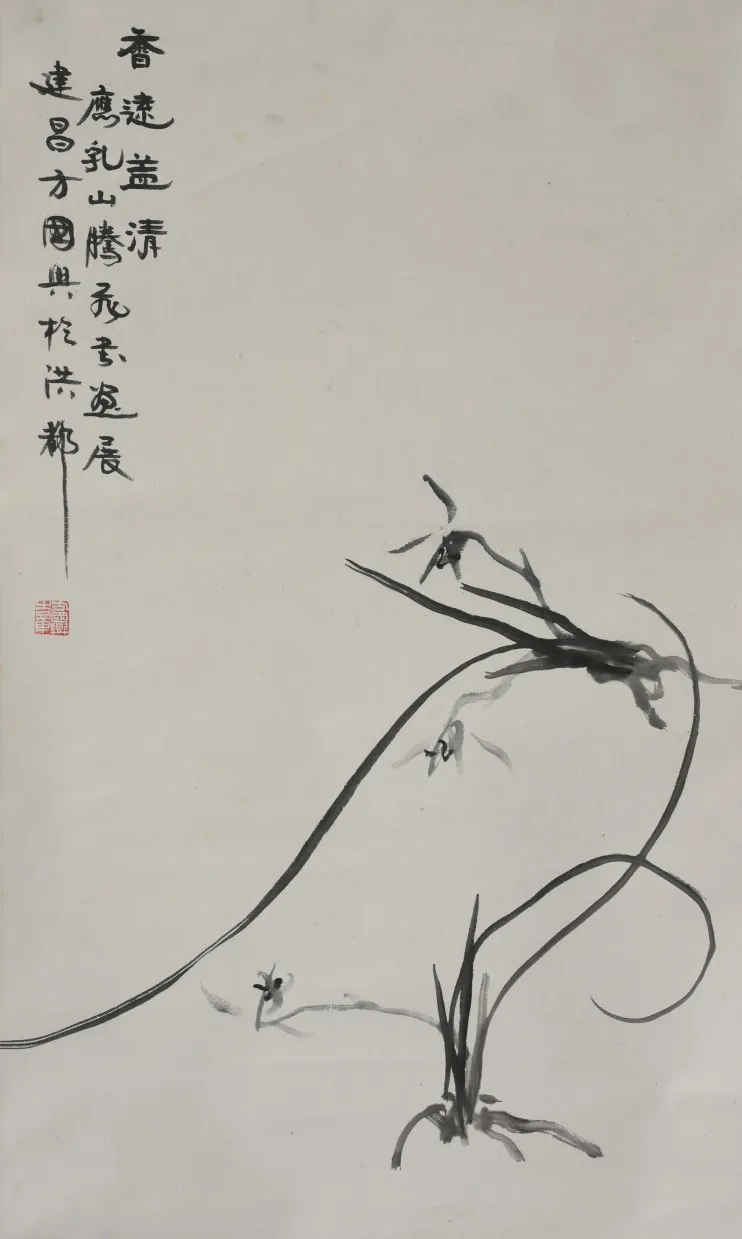 香遠益清
應乳山騰飛書畫展
建昌方國興於洪都